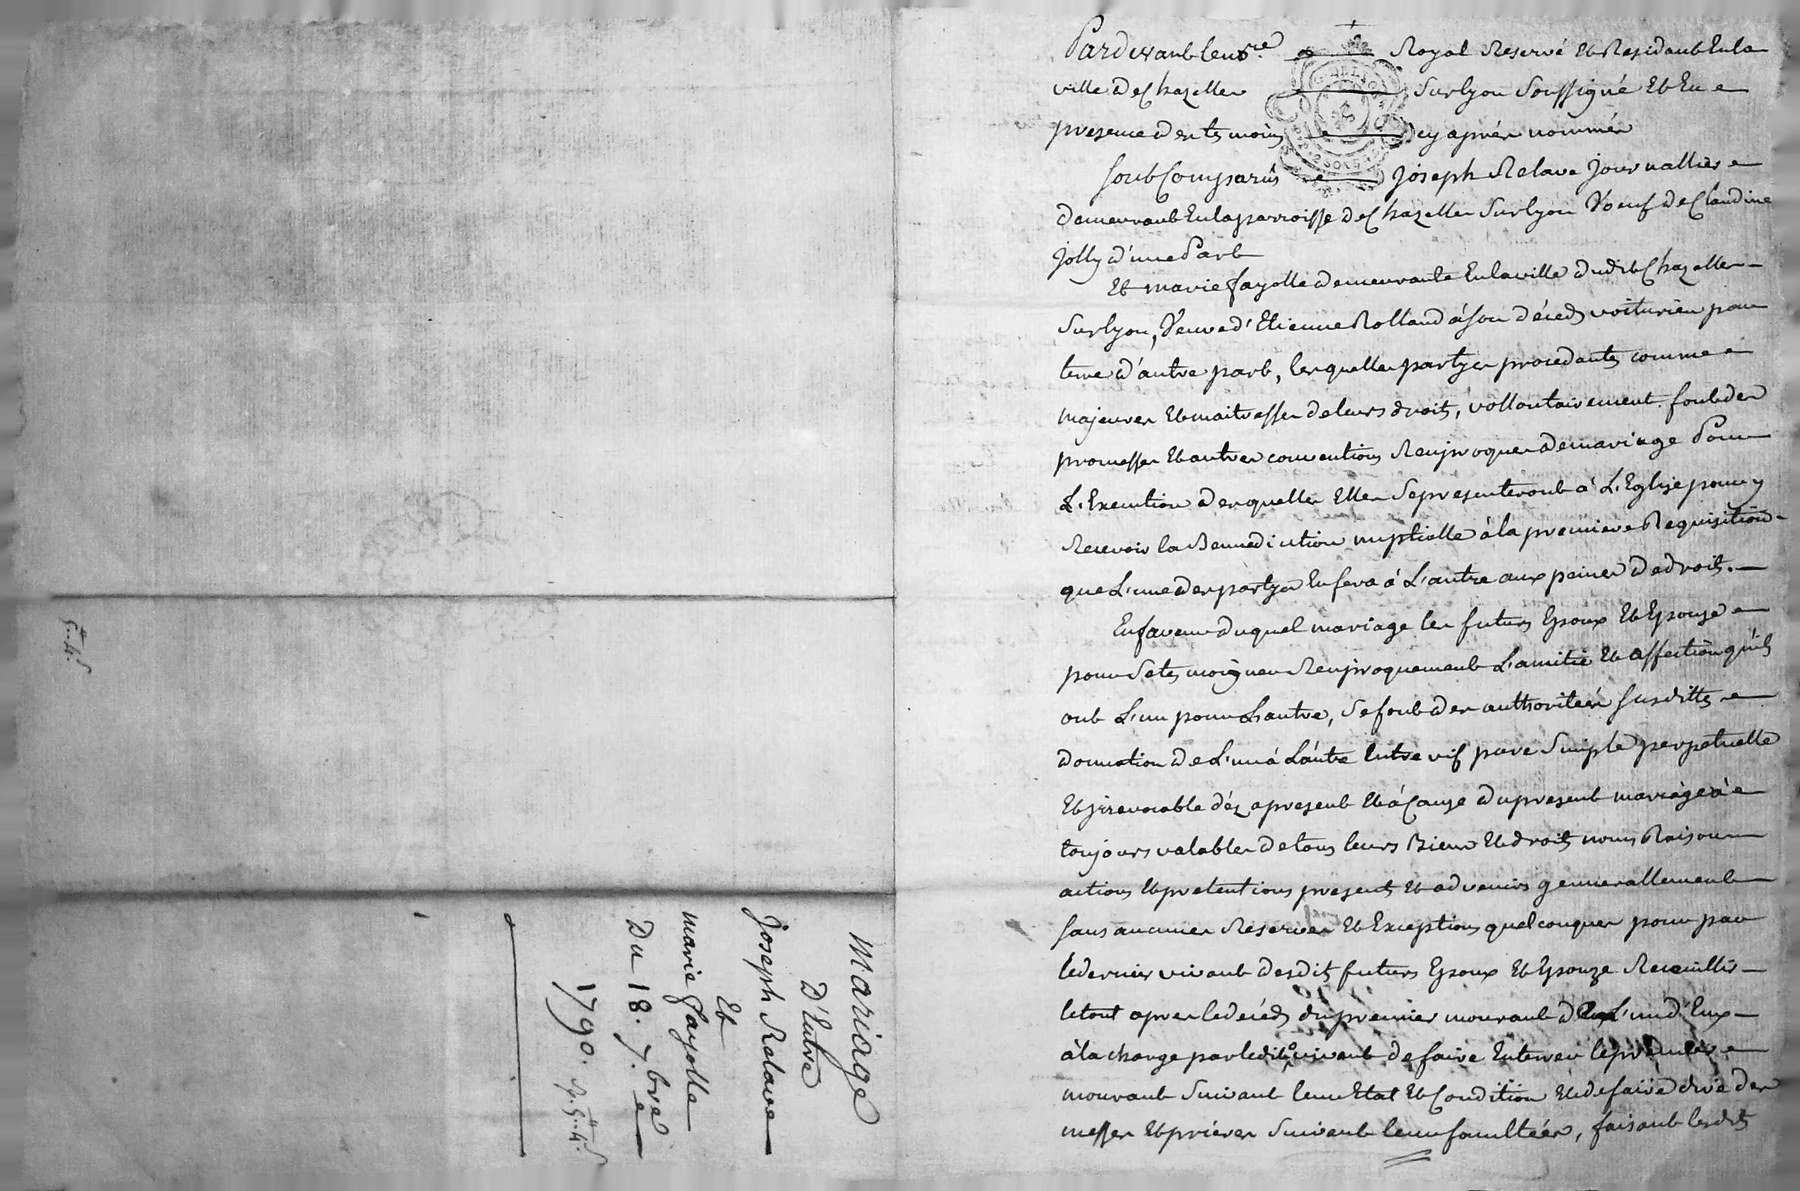 Pardevant le no.re Royal Reservé Et Residant En la
ville de Chazelles Sur lyon Soussigné Et En
presence des temoins cy aprés nommés
Sont Comparus Joseph Relave Journallier
demeurant En la parroisse de Chazelles Sur lyon Veuf de Claudine
Jolly d'une Part
Et marie fayolle demeurante En la ville dudit Chazelles
Sur lyon, Veuve d'Etienne Rolland á son déceds voiturier par
terre d'autre part, lesquelles partyes procedantes comme
majeures Et maitresses de leurs droits, vollontairement font des
promesses Et autres conventions Reciproques de mariage Pour
L'Execution desquelles Elles Se presenteront á L'Eglise pour y
Recevoir la Bennediction nuptialle á la premiere Requisition
que L'une des partyes En fera á L'autre aux peines de droit.
En faveur duquel mariage les futurs Epoux Et Epouse
pour Se temoigner Reciproquement L'amitié Et affection qu'ils
ont L'un pour L'autre, Se font des authoritées susdittes
donnation de L'un á L'autre Entre vif pure Simple perpetuelle
Et irrevocable déz apresent Et á Cause du present mariage á
toujours valables de tous leurs Biens Et droits noms Raisons
actions Et pretentions presents Et advenirs gennerallement
sans aucunes Reserves Et Exceptions quelconques pour par
le dernier vivant desdits futurs Epoux Et Epouze Recuillir
le tout apres le décéds du premier mourant de L'un d'Eux
á la charge par ledit survivant de faire Enterrer le premier
mourant Suivant leur Etat Et Condition Et de faire dire des
messes Et priéres Suivant leurs facultées, faisant lesdits
5.ts.
mariage
D'Entre
Joseph Relave
Et
marie fayolle
Du 18. 7.bre
1790.